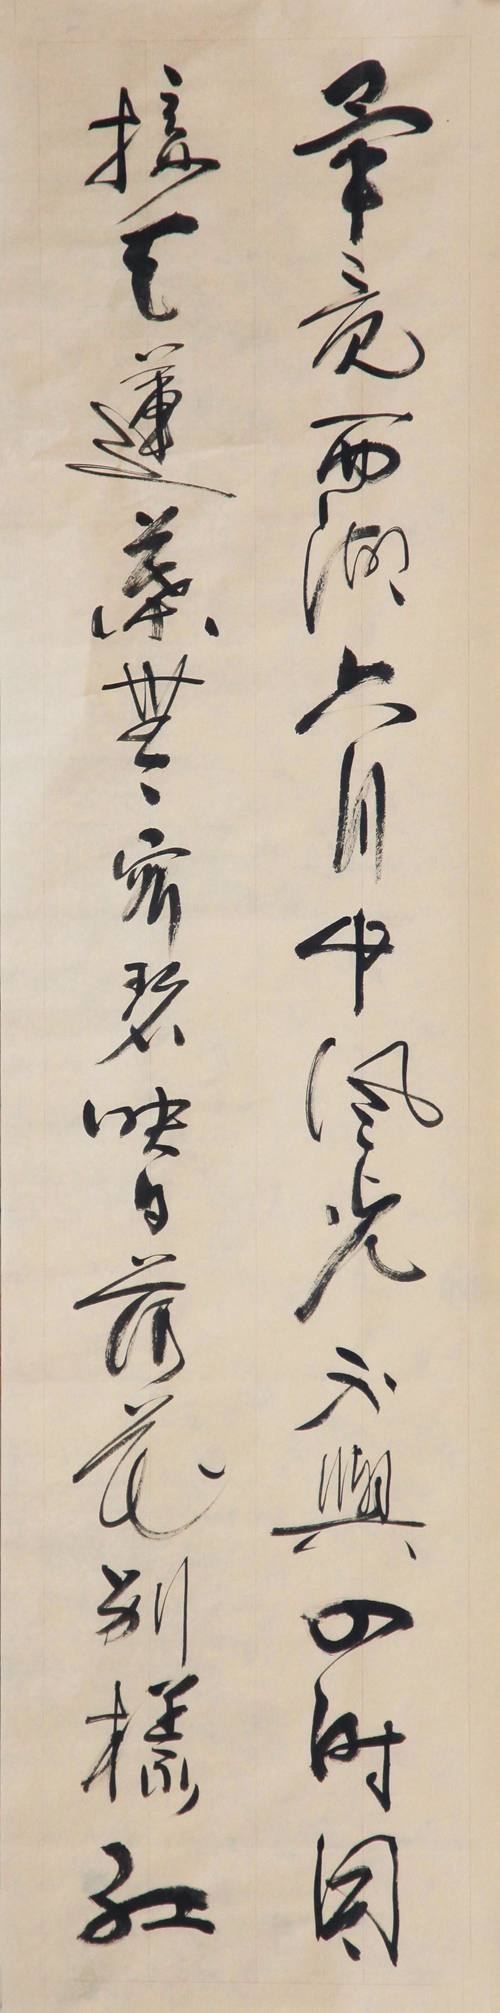 畢竟西湖六月中風光不與四時同
接天蓮葉無窮碧映日荷花別樣紅